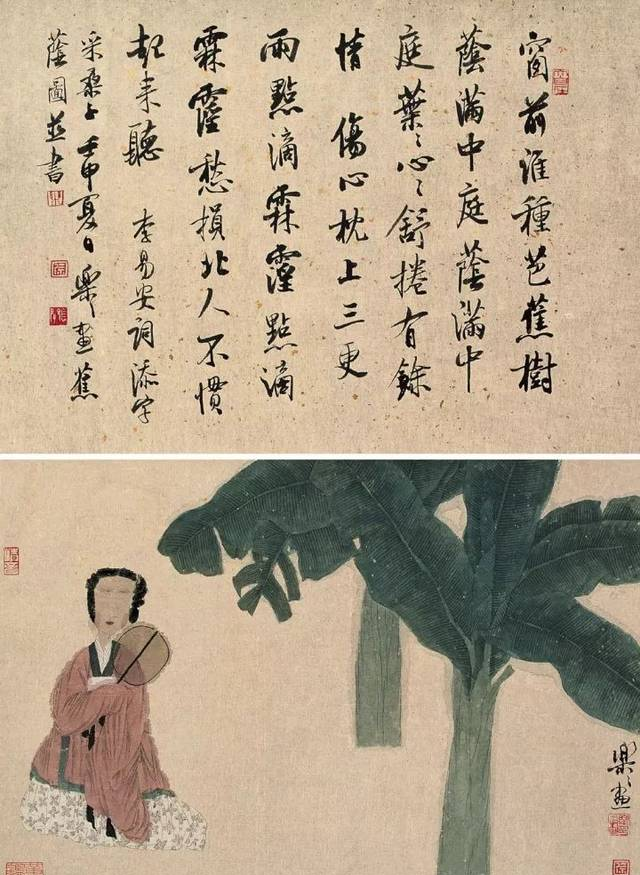 窗前誰種芭蕉樹
蔭滿中庭蔭滿中
庭葉々心々舒捲有餘
情 傷心枕上三更
雨點滴霖霪點滴
霖霪愁損北人不慣
起来聽 李易安詞添字
采桑子 壬申夏日樂畫蕉
蔭圖並書
樂々畫